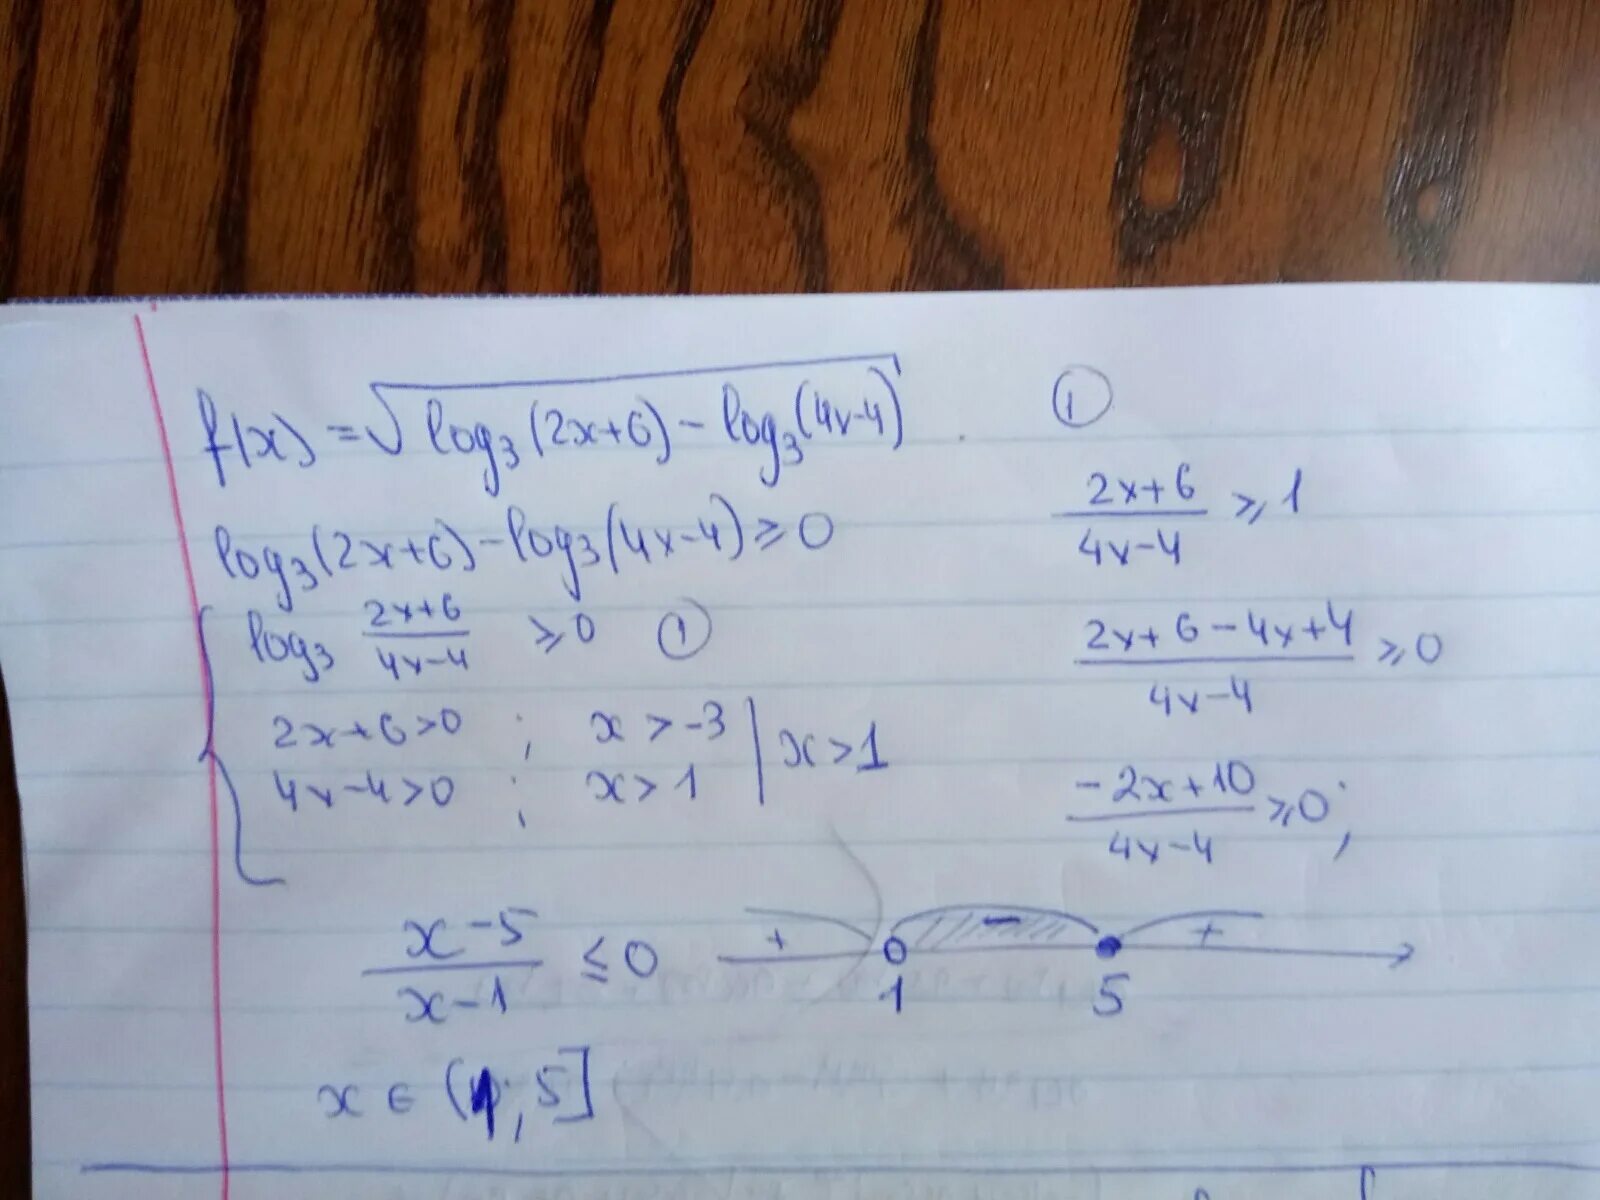 f(x) = √(log₃(2x+6) − log₃(4x−4))
log₃(2x+6) − log₃(4x−4) ≥ 0
log₃ (2x+6)/(4x−4) ≥ 0 ①
2x+6>0 ; x > −3
4x−4>0 ; x > 1
x > 1
①
(2x+6)/(4x−4) ≥ 1
(2x+6−4x+4)/(4x−4) ≥ 0
(−2x+10)/(4x−4) ≥ 0;
(x−5)/(x−1) ≤ 0
+ − +
1 5
x ∈ (1; 5]